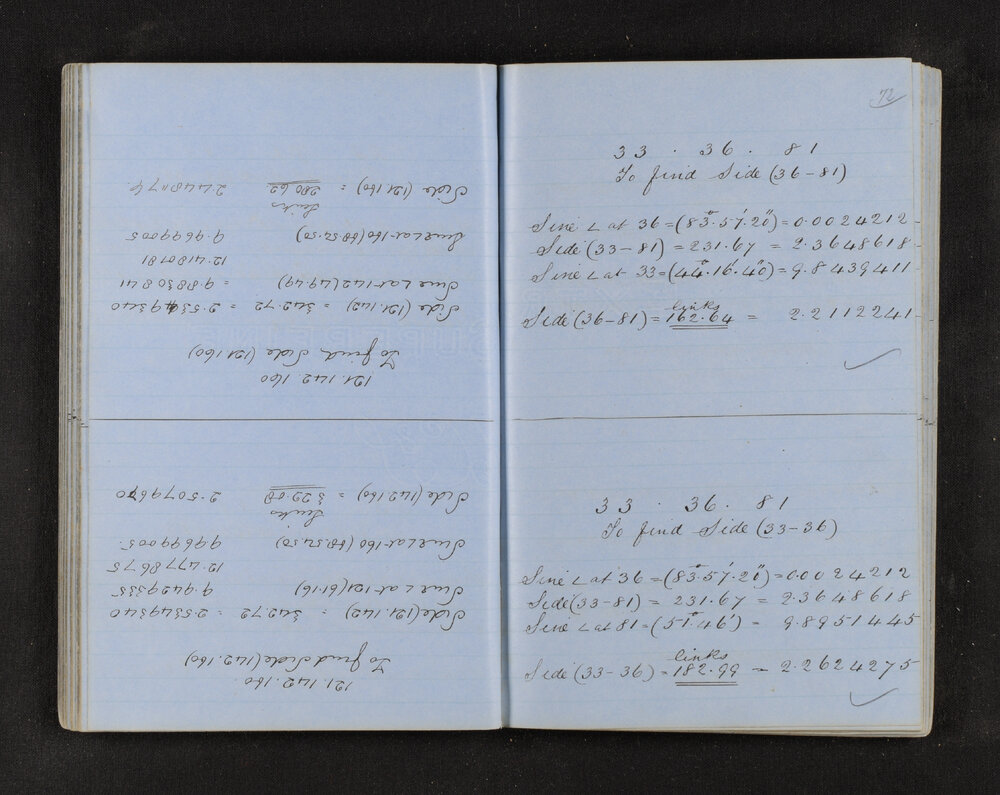 121.142.160
To find Side (142.160)
Side (121.142) = 342.72 = 2.5349340
Sine ∠ at 121 (61.16) 9.9429335
12.4778675
Sine ∠ at 160 (68.52.50) 9.9699005
links
Side (142.160) = 322.08 2.5079670
121.142.160
To find Side (121.160)
Side (121.142) = 342.72 = 2.5349340
Sine ∠ at 142 (49.49) = 9.8830841
12.4180181
Sine ∠ at 160 (68.52.50) 9.9699005
links
Side (121.160) = 280.62 2.4481176
72
33 . 36 . 81
To find Side (36-81)
Sine ∠ at 36 = (83°.57'.20") = 0.0024212
Side (33-81) = 231.67 = 2.3648618
Sine ∠ at 33 = (44°.16'.40") = 9.8439411
links
Side (36-81) = 162.64 = 2.2112241
33 . 36 . 81
To find Side (33-36)
Sine ∠ at 36 = (83°.57'.20") = 0.0024212
Side (33-81) = 231.67 = 2.3648618
Sine ∠ at 81 = (51°.46') = 9.8951445
links
Side (33-36) = 182.99 = 2.2624275